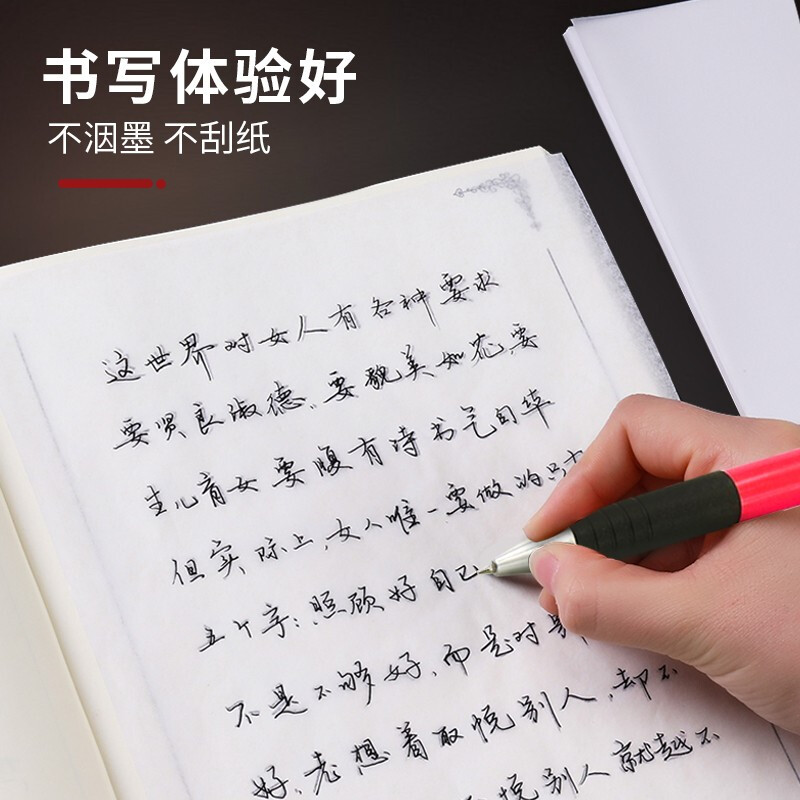 书写体验好
不洇墨 不刮纸
这世界对女人有各种要求
要贤良淑德、要貌美如花,要
生儿育女要腹有诗书气自华
但实际上,女人唯一要做的只有
五个字:照顾好自己
不是不够好,而是对
好,老想着取悦别人,却不
悦别人就越不